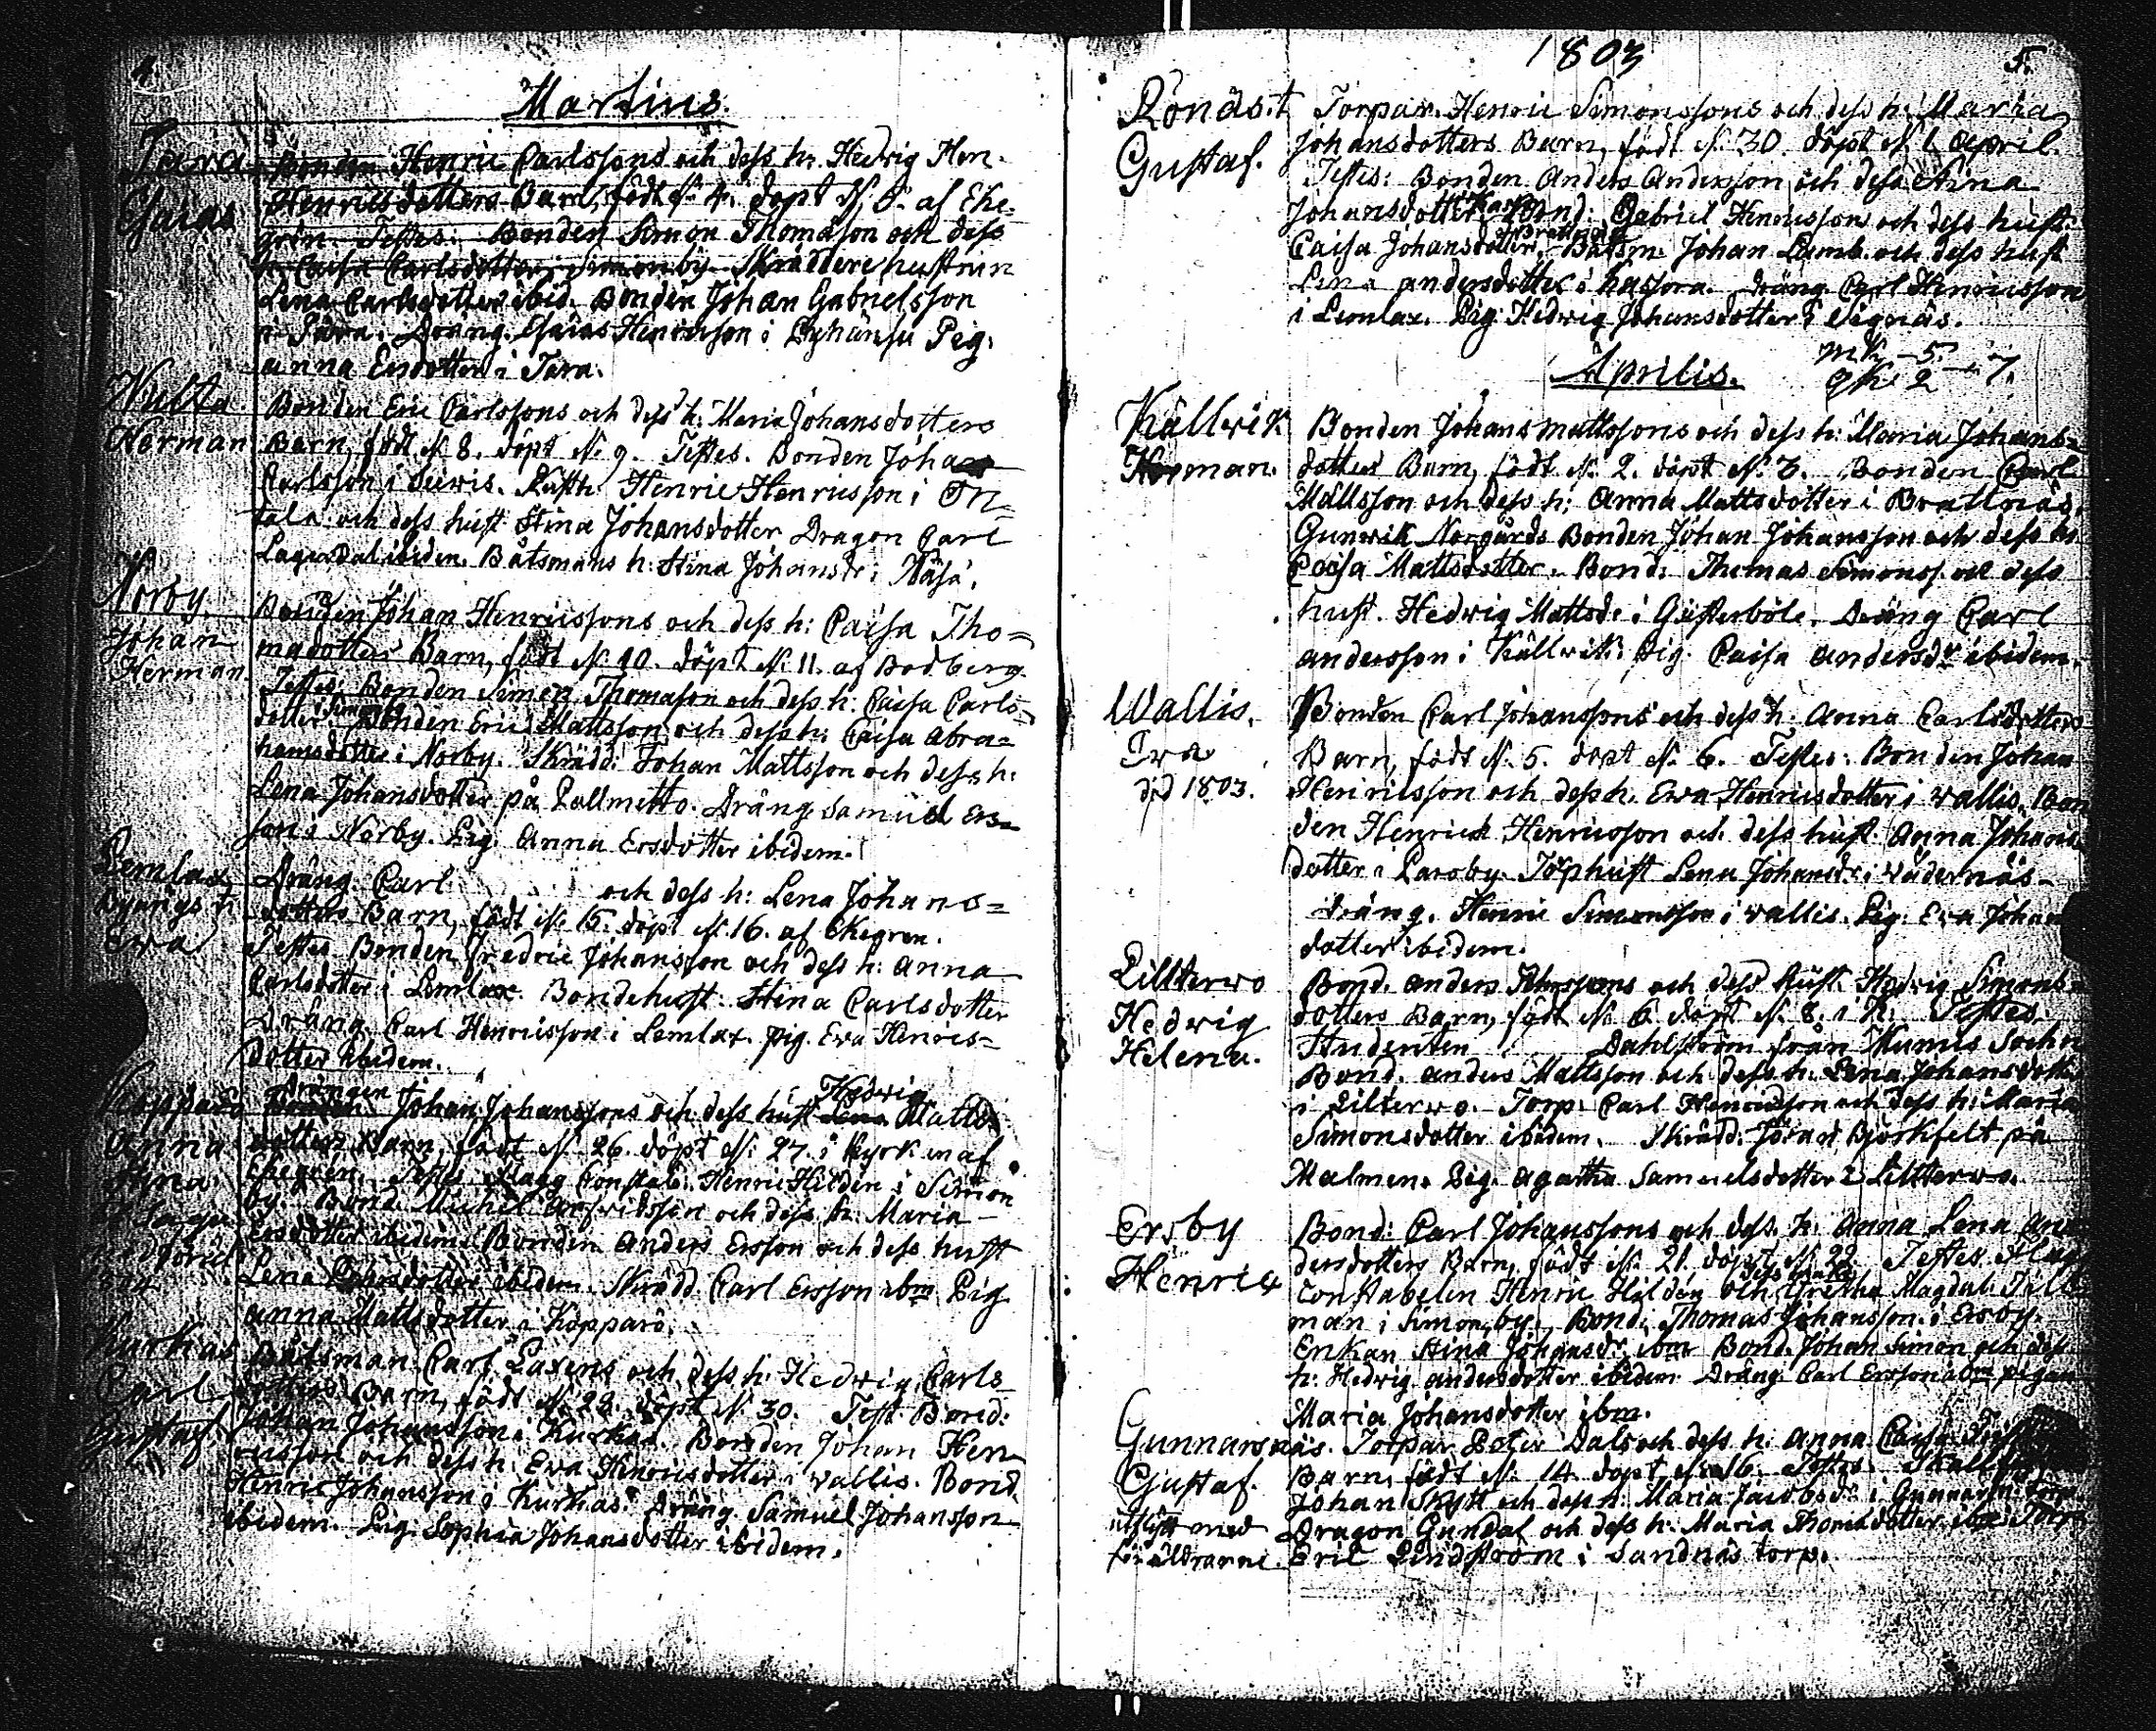 4
Martius.
Tara Bonden Henric Carlssons och dess h: Hedwig Hen-
Esaias Henricsdotters Barn, född d: 4. döpt d: 6. af Eke-
grén. Testes: Bonden Simon Thomasson och dess
h: Caisa Carlsdotter i Simonby. Skräddere hustrun
Lena Carlsdotter ibid. Bonden Johan Gabrielsson
i Tara. Dräng. Esaias Henricsson i Pig:
Anna Ersdotter i Tara.
Bonden Eric Carlssons och dess h: Maria Johansdotters
Herman Barn, född d: 8. döpt d: 9. Testes. Bonden Johan
Carlsson i Henric Henricsson i
tala och dess hust Stina Johansdotter Dragon Carl
Lagerdal ibidem. Båtsmans h: Stina Johansdr i
Norby Bonden Johan Henricssons och dess h: Caisa Tho=
Johan madotters Barn, född d: 10. döpt d: 11. af Bodberg.
Herman. Testes: Bonden Simon Thomasson och dess h: Caisa Carls=
dotter i Simonby Bonden Eric Mattsson och dess h: Caisa Abra=
hamsdotter i Norby. Skrädd: Johan Mattsson och dess h:
Lena Johansdotter på Dräng Samuel Ers=
son i Norby. Pig. Anna Ersdotter ibidem.
Lemlax Dräng. Carl och dess h: Lena Johans=
dotters Barn, född d: 15. döpt d: 16. af Ekegren.
Ewa Testes Bonden Fredric Johansson och dess h: Anna
Carlsdotter i Lemlax. Bondehust: Stina Carlsdotter
Dräng. Carl Henricsson i Lemlax. pig. Eva Henrics=
dotter ibidem.
Kopparö Drängen Johan Johanssons och dess hust Hedwig Matts
Anna dotters Barn, född d: 26. döpt d: 27. i Kyrkan af
Stina Ekegren. Testes Magg Constab: Henric Hilden i Simon
by. Bond. Michel Arfvidsson och dess h: Maria
Ersdotter ibidem. Bonden Anders Ersson och dess hust
Lena Johansdotter ibidem. Skrädd Carl Ersson ibm Pig
Anna Mattsdotter i Kopparö.
Kurkas Båtsman Carl Laxens och dess h: Hedwig Carls
Carl dotters Barn, född d: 29. döpt d: 30. Test. Bond:
Gustaf. Johan Johansson i Kurkas. Bonden Johan Hen
ricsson och dess h: Eva Henricsdotter i Wallis. Bond.
Henric Johansson i Kurkas. Dräng. Samuel Johansson
ibidem. Pig: Sophia Johansdotter ibidem.
1803
5.
Rönäs t Torpar. Henric Simonssons och dess h: Maria
Gustaf. Johansdotters Barn, född d: 30. döpt d: 1. April.
Testes: Bonden Anders Andersson och dess Stina
Johansdotter Bond: Gabriel Henricsson och dess hust:
Caisa Johansdotter, i Brattnäs Båtsm. Johan Lamb och dess hust
Lena Andersdotter i Hassora. Dräng. Carl Henricsson
i Lemlax. Pig: Hedwig Johansdotter i Signäs.
Aprilis. mk. 5 qk. 2 = 7.
Källwik Bonden Johan Mattssons och dess h: Maria Johans=
Herman. dotters Barn, född d: 2. döpt d: 3. Bonden Carl
Mattsson och dess h: Anna Mattsdotter i Brattnäs.
Gunwik Norgårds Bonden Johan Johansson och dess h:
Caisa Mattsdotter. Bond: Thomas Simonss. och dess
hust. Hedwig Mattsdr i Gusterböle. Dräng Carl
Andersson i Källwik. Pig. Caisa Andersdr ibidem.
Wallis. Bonden Carl Johanssons och dess h: Anna Carlsdotters
Eva Barn, född d: 5. döpt d: 6. Testes: Bonden Johan
död 1803. Henricsson och dess h. Ewa Henricsdotter i Wallis. Bon
den Henrick Henricsson och dess hust Anna Johans-
dotter i Parsby. Torphust Lena Johansdr i Wädernäs-
dräng. Henric Simonsson i Wallis. Pig: Eva Johan
dotter ibidem.
Liltterwo Bond. Anders Johanssons och dess hust. Hedwig Simons-
Hedwig dotters Barn, född d: 6. döpt d: 8. i K: Testes
Helena. Studenten Dahlström från Kumis Sochn
Bond. Anders Mattsson och dess h: Lena Johansdott
i Lilterwo. Torp. Carl Henricsson och dess h: Maria
Simonsdotter ibidem. Skrädd: Jöran Björkfelt på
Malmen. Pig. Agatha Samuelsdotter i Liltterwo.
Ersby Bond: Carl Johanssons och dess h: Anna Lena An
Henric dersdotters Barn, född d: 21. döpt d: 22. Testes. Mag
Constabelen Henric Hilden och dess maka Gretha Magdal:
man i Simonby. Bond. Thomas Johansson i Ersby.
Enkan Stina Johansdr ibm Bond. Johan Simon och dess
h: Hedwig Andersdotter ibidem Dräng. Carl Ersson ibm pigan
Maria Johansdotter ibm.
Gunnarsnäs. Torpar Peter Dals och dess h: Anna Caisa
Gustaf. Barn, född d: 14. döpt d: 16. Testes.
utflytt med Johan Skytt och dess h: Maria Jacobsdr i Gunnarsn: torp.
föräldrarne. Dragon Gundal och dess h: Maria Thomadotter ibm
Eric Lindström i Sandnäs torp.